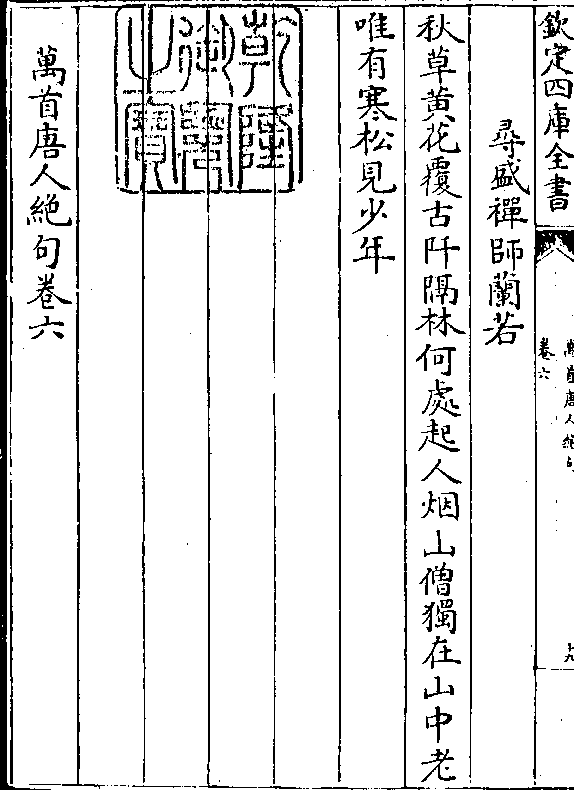 欽定四庫全書
萬首唐人絕句
卷六
十九
尋盛禪師蘭若
秋草黄花覆古阡隔林何處起人烟山僧獨在山中老
唯有寒松見少年
乾隆
御覽
之寶
萬首唐人絶句卷六